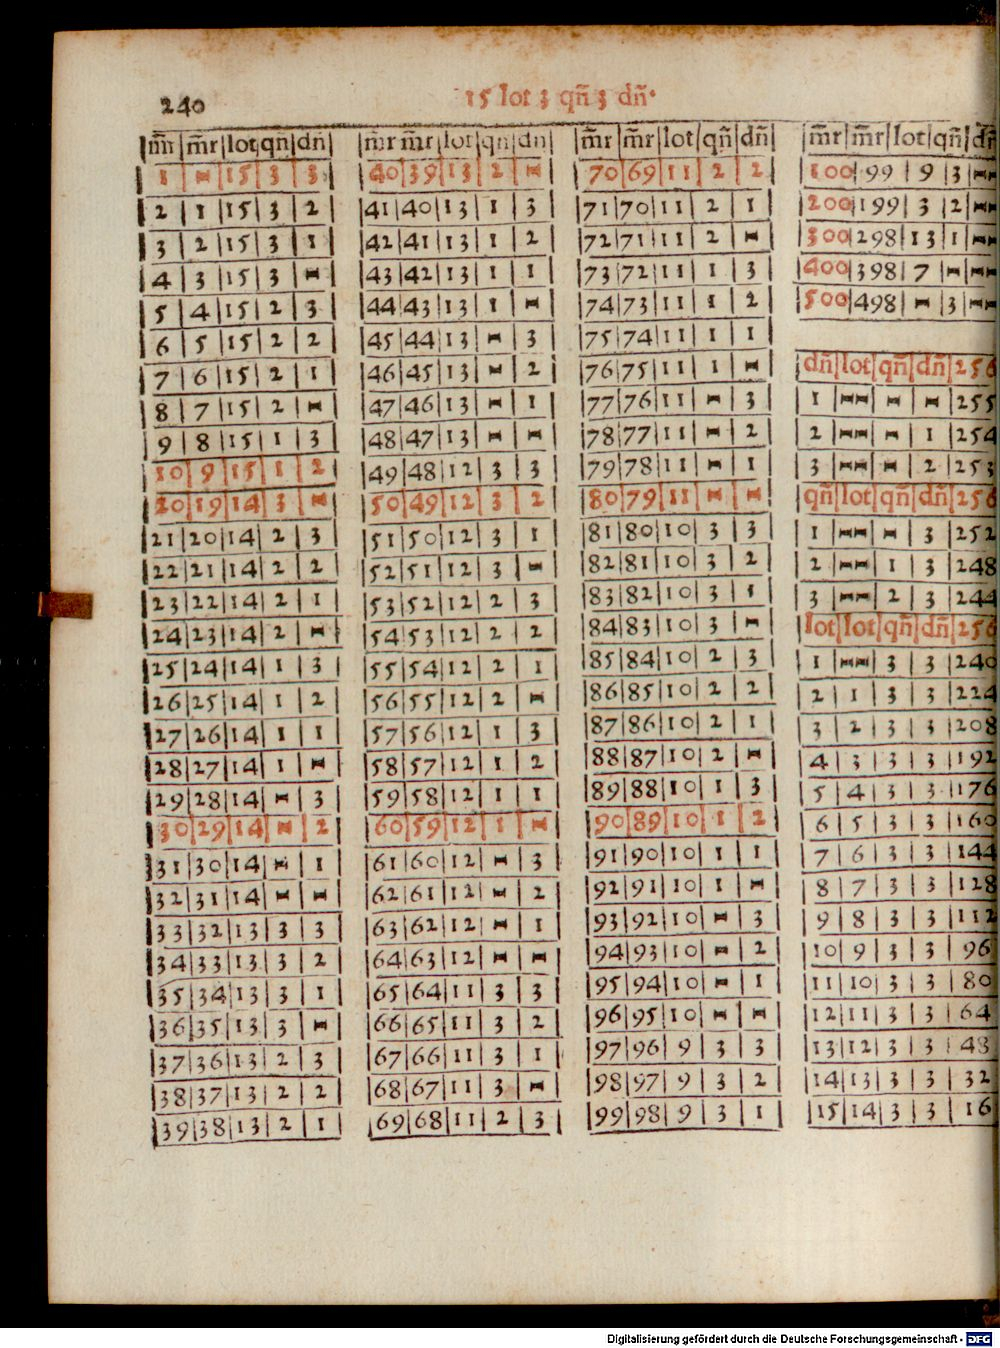 240
15 lot 3 qñ 3 dñ·
m̄r | m̄r | lot | qñ | dñ
1 | - | 15 | 3 | 3
2 | 1 | 15 | 3 | 2
3 | 2 | 15 | 3 | 1
4 | 3 | 15 | 3 | -
5 | 4 | 15 | 2 | 3
6 | 5 | 15 | 2 | 2
7 | 6 | 15 | 2 | 1
8 | 7 | 15 | 2 | -
9 | 8 | 15 | 1 | 3
10 | 9 | 15 | 1 | 2
20 | 19 | 14 | 3 | -
21 | 20 | 14 | 2 | 3
22 | 21 | 14 | 2 | 2
23 | 22 | 14 | 2 | 1
24 | 23 | 14 | 2 | -
25 | 24 | 14 | 1 | 3
26 | 25 | 14 | 1 | 2
27 | 26 | 14 | 1 | 1
28 | 27 | 14 | 1 | -
29 | 28 | 14 | - | 3
30 | 29 | 14 | - | 2
31 | 30 | 14 | - | 1
32 | 31 | 14 | - | -
33 | 32 | 13 | 3 | 3
34 | 33 | 13 | 3 | 2
35 | 34 | 13 | 3 | 1
36 | 35 | 13 | 3 | -
37 | 36 | 13 | 2 | 3
38 | 37 | 13 | 2 | 2
39 | 38 | 13 | 2 | 1
m̄r m̄r | lot | qñ | dñ
40 | 39 | 13 | 2 | -
41 | 40 | 13 | 1 | 3
42 | 41 | 13 | 1 | 2
43 | 42 | 13 | 1 | 1
44 | 43 | 13 | 1 | -
45 | 44 | 13 | - | 3
46 | 45 | 13 | - | 2
47 | 46 | 13 | - | 1
48 | 47 | 13 | - | -
49 | 48 | 12 | 3 | 3
50 | 49 | 12 | 3 | 2
51 | 50 | 12 | 3 | 1
52 | 51 | 12 | 3 | -
53 | 52 | 12 | 2 | 3
54 | 53 | 12 | 2 | 2
55 | 54 | 12 | 2 | 1
56 | 55 | 12 | 2 | -
57 | 56 | 12 | 1 | 3
58 | 57 | 12 | 1 | 2
59 | 58 | 12 | 1 | 1
60 | 59 | 12 | 1 | -
61 | 60 | 12 | - | 3
62 | 61 | 12 | - | 2
63 | 62 | 12 | - | 1
64 | 63 | 12 | - | -
65 | 64 | 11 | 3 | 3
66 | 65 | 11 | 3 | 2
67 | 66 | 11 | 3 | 1
68 | 67 | 11 | 3 | -
69 | 68 | 11 | 2 | 3
m̄r | m̄r | lot | qñ | dñ
70 | 69 | 11 | 2 | 2
71 | 70 | 11 | 2 | 1
72 | 71 | 11 | 2 | -
73 | 72 | 11 | 1 | 3
74 | 73 | 11 | 1 | 2
75 | 74 | 11 | 1 | 1
76 | 75 | 11 | 1 | -
77 | 76 | 11 | - | 3
78 | 77 | 11 | - | 2
79 | 78 | 11 | - | 1
80 | 79 | 11 | - | -
81 | 80 | 10 | 3 | 3
82 | 81 | 10 | 3 | 2
83 | 82 | 10 | 3 | 1
84 | 83 | 10 | 3 | -
85 | 84 | 10 | 2 | 3
86 | 85 | 10 | 2 | 2
87 | 86 | 10 | 2 | 1
88 | 87 | 10 | 2 | -
89 | 88 | 10 | 1 | 3
90 | 89 | 10 | 1 | 2
91 | 90 | 10 | 1 | 1
92 | 91 | 10 | 1 | -
93 | 92 | 10 | - | 3
94 | 93 | 10 | - | 2
95 | 94 | 10 | - | 1
96 | 95 | 10 | - | -
97 | 96 | 9 | 3 | 3
98 | 97 | 9 | 3 | 2
99 | 98 | 9 | 3 | 1
m̄r | m̄r | lot | qñ | dñ
100 | 99 | 9 | 3 | --
200 | 199 | 3 | 2 | --
300 | 298 | 13 | 1 | --
400 | 398 | 7 | - | --
500 | 498 | - | 3 | --
dñ | lot | qñ | dñ | 256
1 | -- | - | - | 255
2 | -- | - | 1 | 254
3 | -- | - | 2 | 253
qñ | lot | qñ | dñ | 256
1 | -- | - | 3 | 252
2 | -- | 1 | 3 | 248
3 | -- | 2 | 3 | 244
lot | lot | qñ | dñ | 256
1 | -- | 3 | 3 | 240
2 | 1 | 3 | 3 | 224
3 | 2 | 3 | 3 | 208
4 | 3 | 3 | 3 | 192
5 | 4 | 3 | 3 | 176
6 | 5 | 3 | 3 | 160
7 | 6 | 3 | 3 | 144
8 | 7 | 3 | 3 | 128
9 | 8 | 3 | 3 | 112
10 | 9 | 3 | 3 | 96
11 | 10 | 3 | 3 | 80
12 | 11 | 3 | 3 | 64
13 | 12 | 3 | 3 | 48
14 | 13 | 3 | 3 | 32
15 | 14 | 3 | 3 | 16
Digitalisierung gefördert durch die Deutsche Forschungsgemeinschaft - DFG